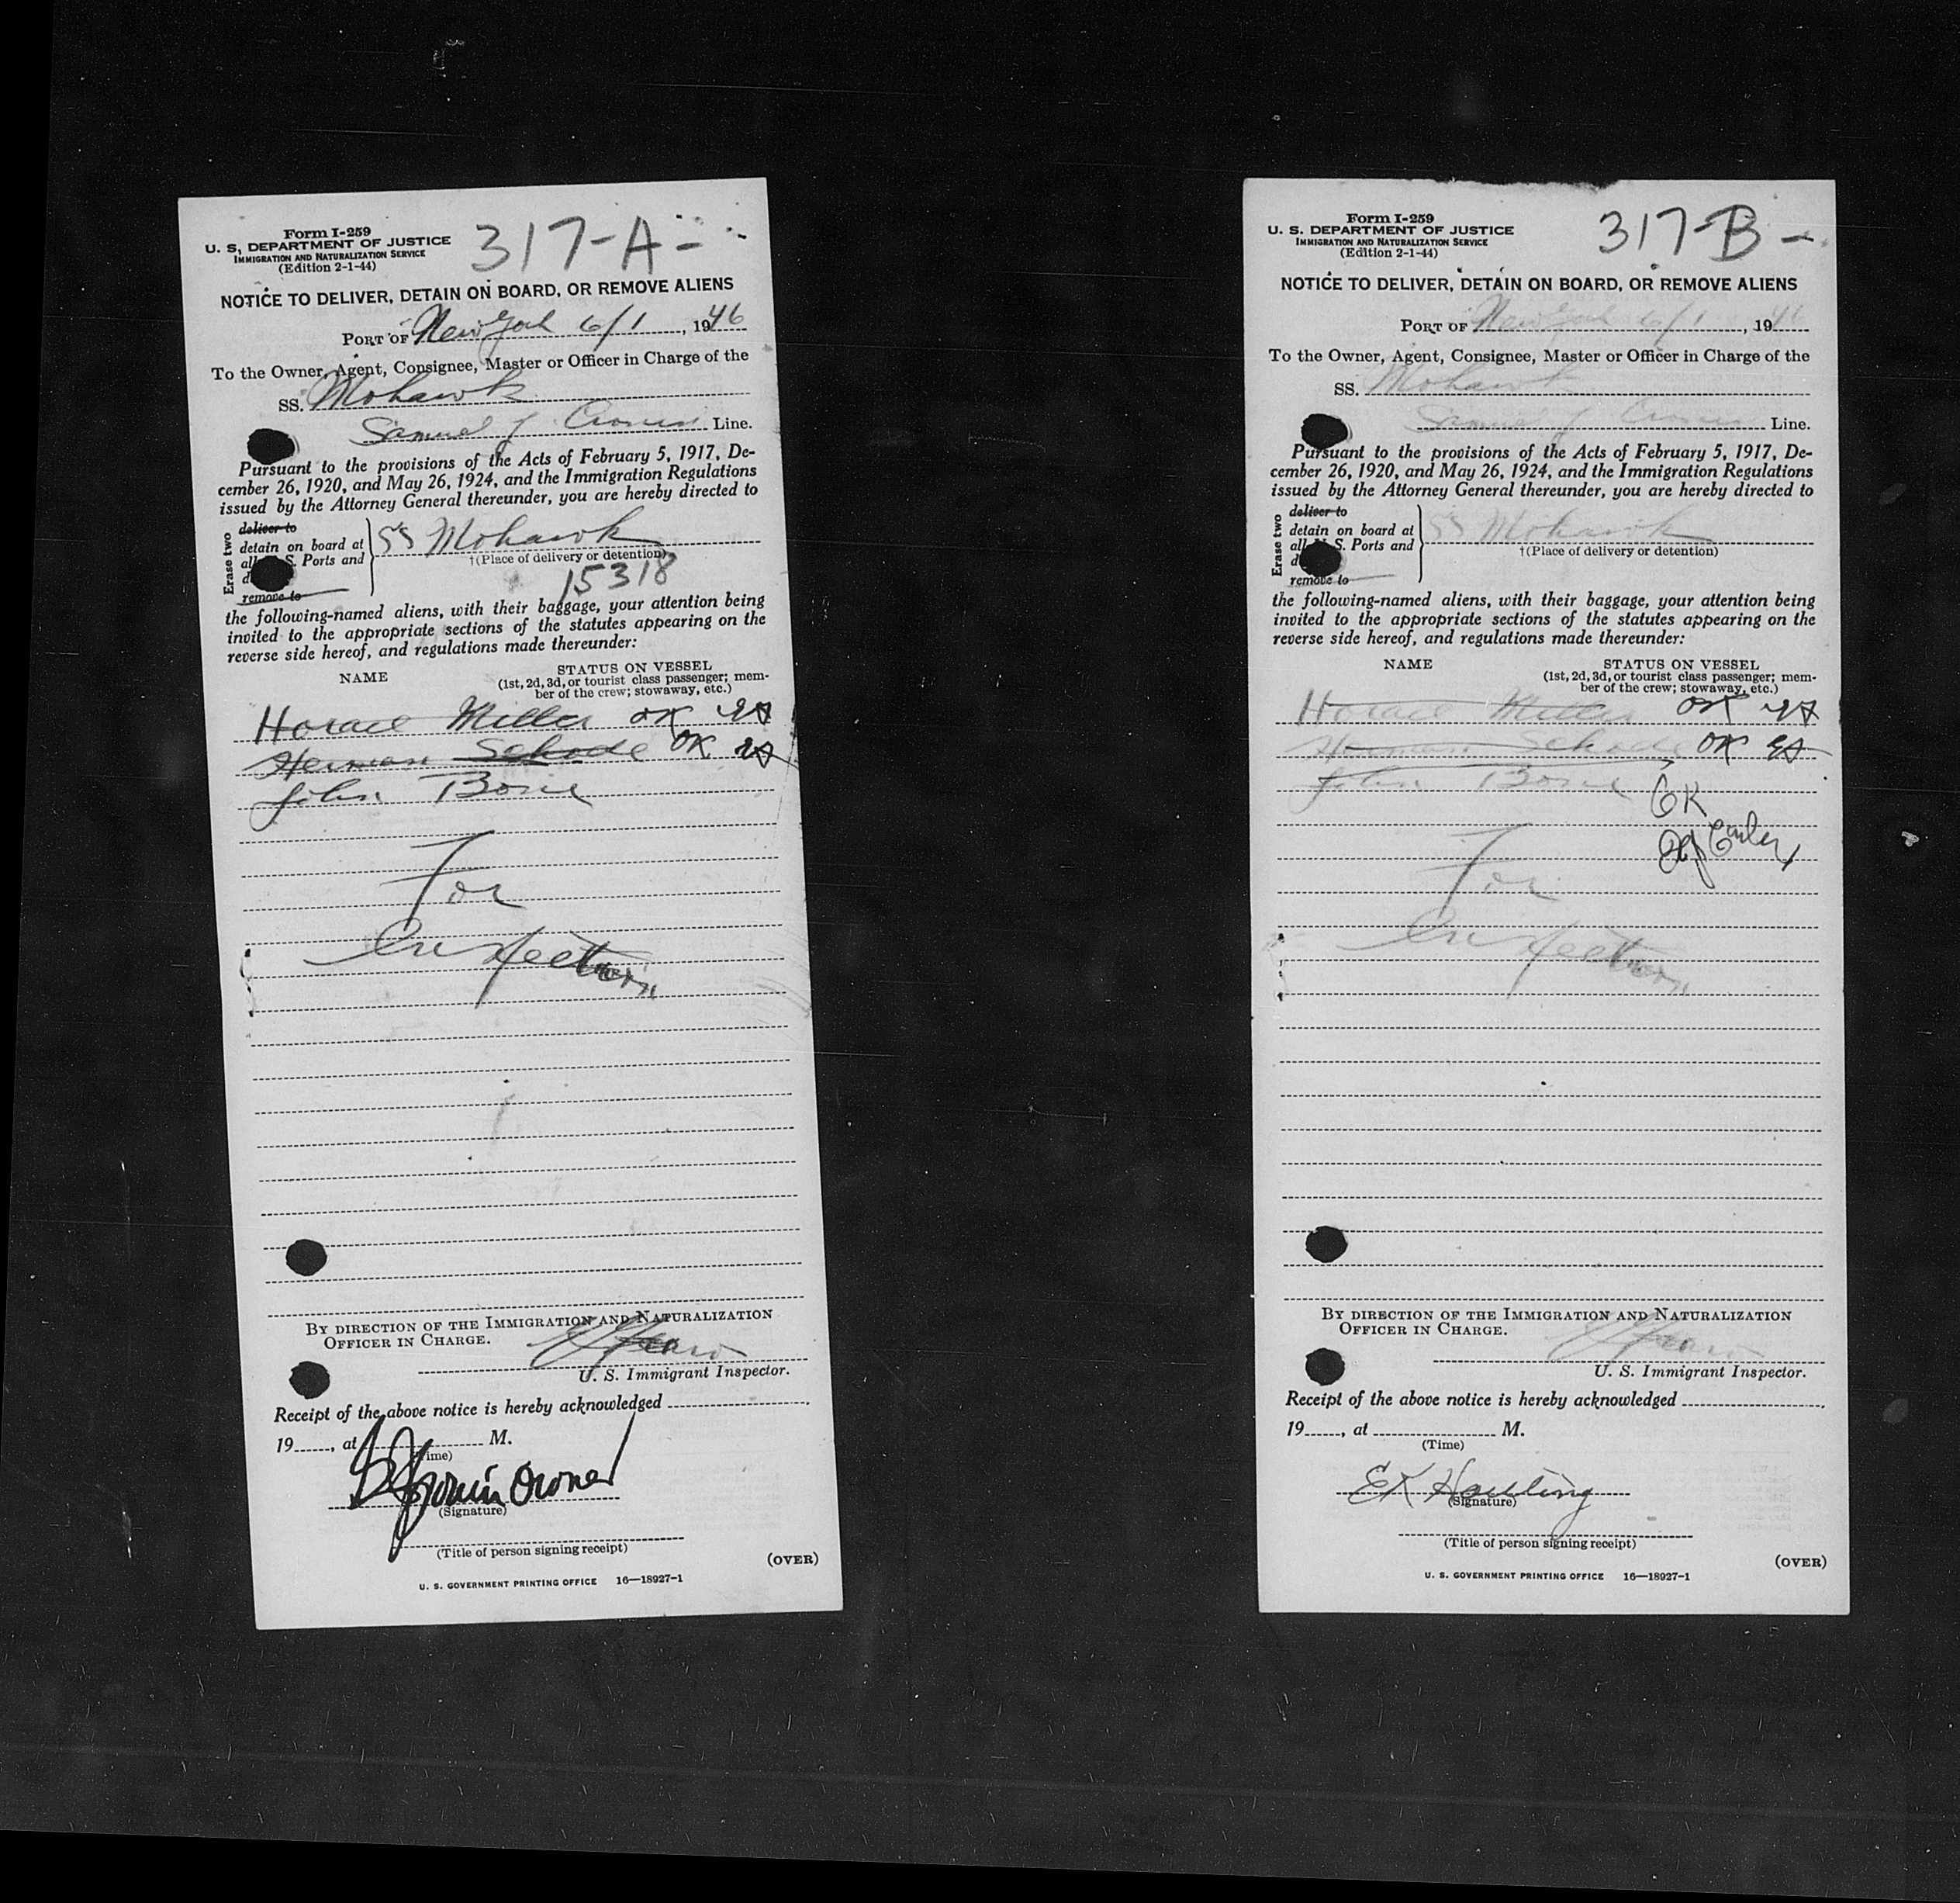 Form I-259
U. S. DEPARTMENT OF JUSTICE
IMMIGRATION AND NATURALIZATION SERVICE
(Edition 2-1-44)
317-A-
NOTICE TO DELIVER, DETAIN ON BOARD, OR REMOVE ALIENS
PORT OF New York 6/1, 1946
To the Owner, Agent, Consignee, Master or Officer in Charge of the
SS. Mohawk
Samuel J Line.
Pursuant to the provisions of the Acts of February 5, 1917, De-
cember 26, 1920, and May 26, 1924, and the Immigration Regulations
issued by the Attorney General thereunder, you are hereby directed to
Erase two
deliver to
detain on board at
all S. Ports and
remove to
SS Mohawk
†(Place of delivery or detention)
15318
the following-named aliens, with their baggage, your attention being
invited to the appropriate sections of the statutes appearing on the
reverse side hereof, and regulations made thereunder:
NAME
STATUS ON VESSEL
(1st, 2d, 3d, or tourist class passenger; mem-
ber of the crew; stowaway, etc.)
Horace Miller OK
Herman Schade OK
John
For
Inspection
BY DIRECTION OF THE IMMIGRATION AND NATURALIZATION
OFFICER IN CHARGE.
U. S. Immigrant Inspector.
Receipt of the above notice is hereby acknowledged
19, at M.
(Time)
(Signature)
(Title of person signing receipt)
(OVER)
U. S. GOVERNMENT PRINTING OFFICE 16—18927-1
Form I-259
U. S. DEPARTMENT OF JUSTICE
IMMIGRATION AND NATURALIZATION SERVICE
(Edition 2-1-44)
317-B-
NOTICE TO DELIVER, DETAIN ON BOARD, OR REMOVE ALIENS
PORT OF New York 6/1, 1946
To the Owner, Agent, Consignee, Master or Officer in Charge of the
SS. Mohawk
Samuel J Line.
Pursuant to the provisions of the Acts of February 5, 1917, De-
cember 26, 1920, and May 26, 1924, and the Immigration Regulations
issued by the Attorney General thereunder, you are hereby directed to
Erase two
deliver to
detain on board at
all S. Ports and
remove to
SS Mohawk
†(Place of delivery or detention)
the following-named aliens, with their baggage, your attention being
invited to the appropriate sections of the statutes appearing on the
reverse side hereof, and regulations made thereunder:
NAME
STATUS ON VESSEL
(1st, 2d, 3d, or tourist class passenger; mem-
ber of the crew; stowaway, etc.)
Horace Miller OK
Herman Schade OK
John OK
For
Inspection
BY DIRECTION OF THE IMMIGRATION AND NATURALIZATION
OFFICER IN CHARGE.
U. S. Immigrant Inspector.
Receipt of the above notice is hereby acknowledged
19, at M.
(Time)
EK
(Signature)
(Title of person signing receipt)
(OVER)
U. S. GOVERNMENT PRINTING OFFICE 16—18927-1